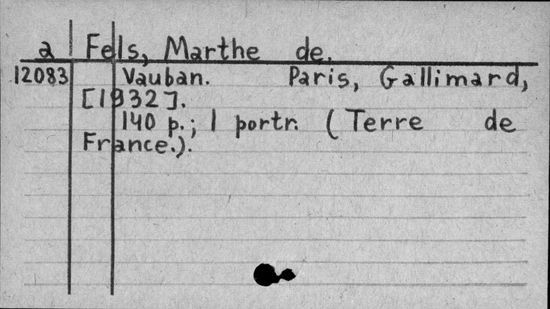 a Fels, Marthe de.
12083 Vauban. Paris, Gallimard,
[1932].
140 p.; 1 portr. (Terre de
France.).